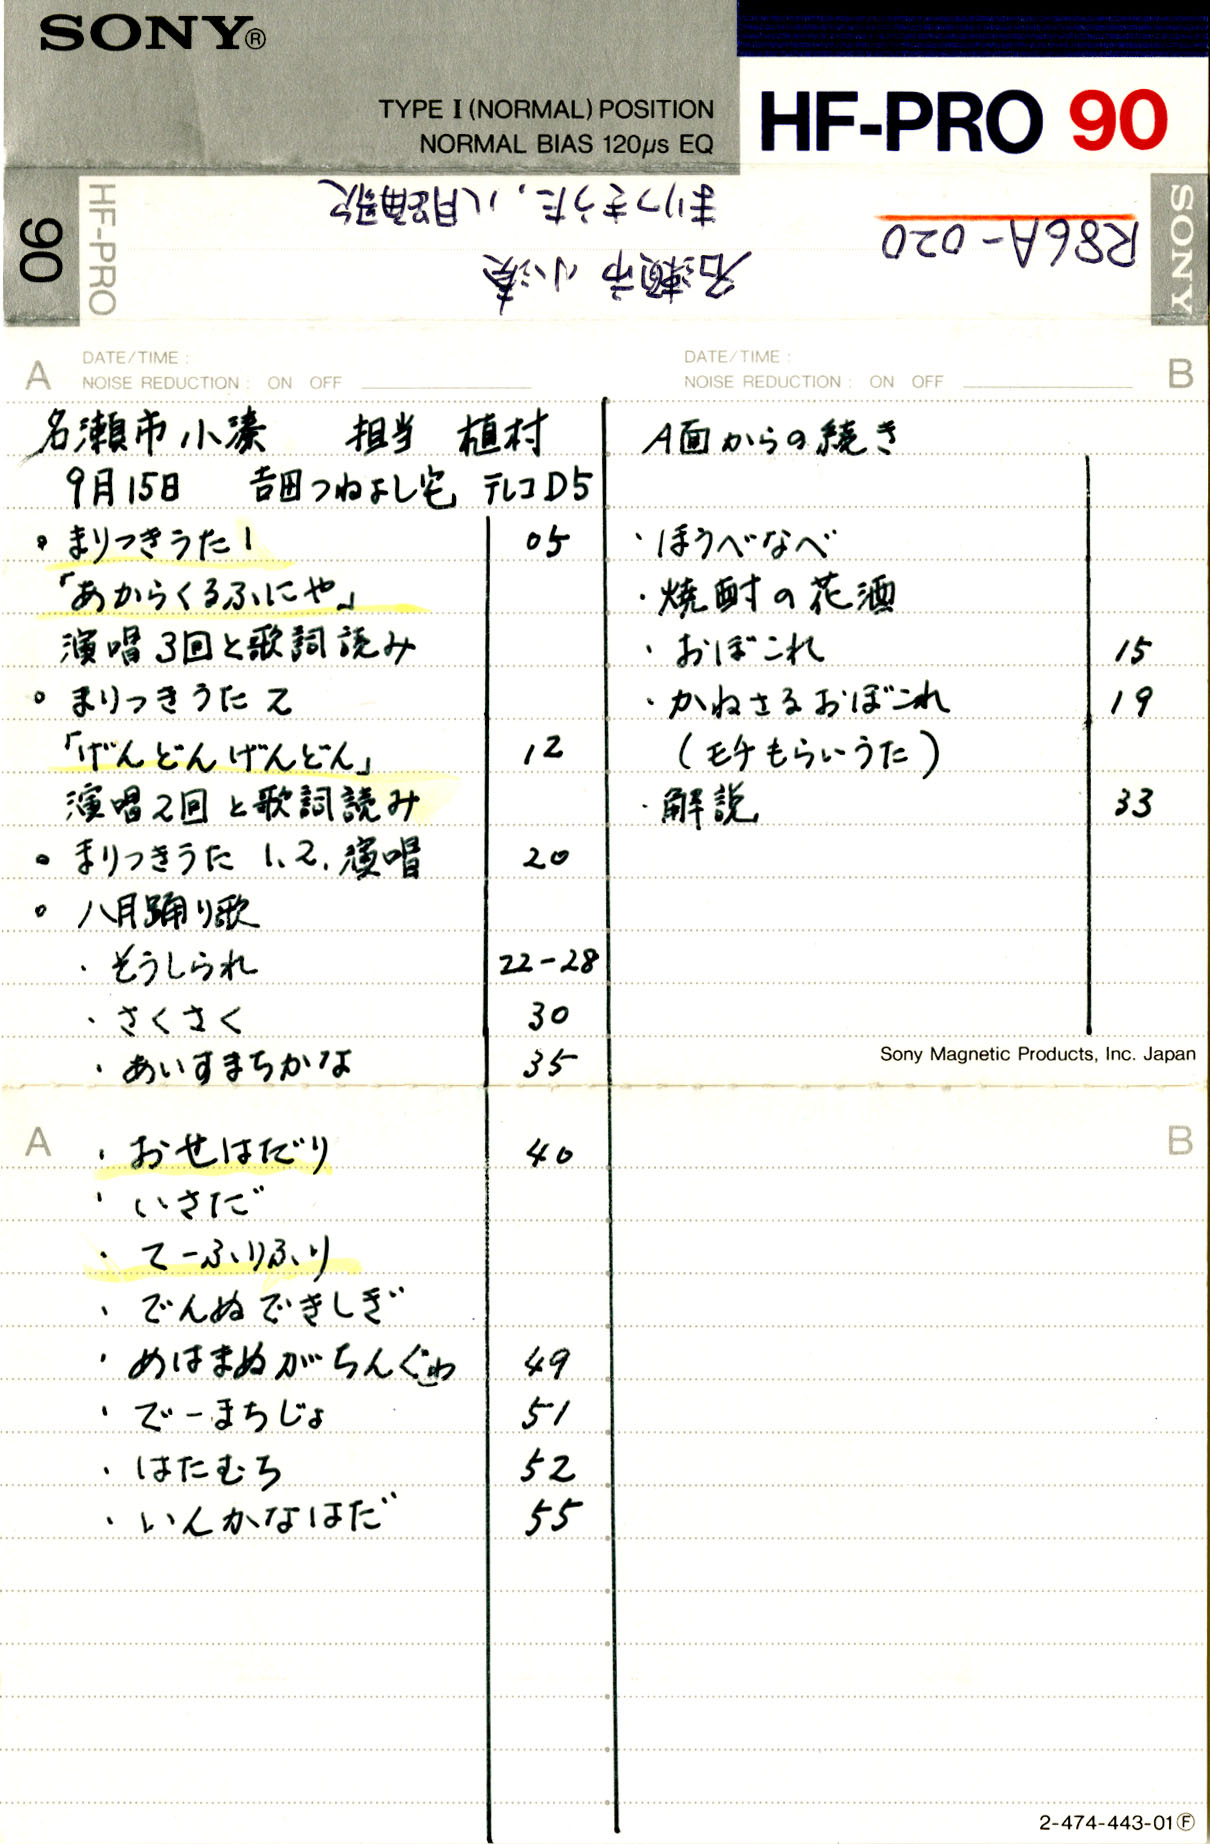 SONY®
TYPE I (NORMAL) POSITION
NORMAL BIAS 120μs EQ
HF-PRO 90
90
HF-PRO
まりつきうた, 八月踊歌
名瀬市 小湊
R86A-020
SONY
A
DATE/TIME :
NOISE REDUCTION : ON OFF
名瀬市 小湊 担当 植村
9月15日 吉田つねよし宅 テレコD5
◦ まりつきうた 1 05
「あからくるふにや」
演唱 3回と歌詞読み
◦ まりつきうた 2
「げんどんげんどん」 12
演唱2回と歌詞読み
◦ まりつきうた 1、2、演唱 20
◦ 八月踊り歌
・ そうしられ 22-28
・ さくさく 30
・ あいすまちかな 35
A
・ おせはだり 40
・ いさだ
・ てーふりふり
・ でんぬできしぎ
・ めはまぬがちんぐゎ 49
・ でーまちじょ 51
・ はたむち 52
・ いんかなはだ 55
B
DATE/TIME :
NOISE REDUCTION : ON OFF
A面からの続き
・ほうべなべ
・焼酎の花酒
・おぼこれ 15
・かねさるおぼこれ 19
(モチもらいうた)
・解説 33
Sony Magnetic Products, Inc. Japan
B
2-474-443-01Ⓕ